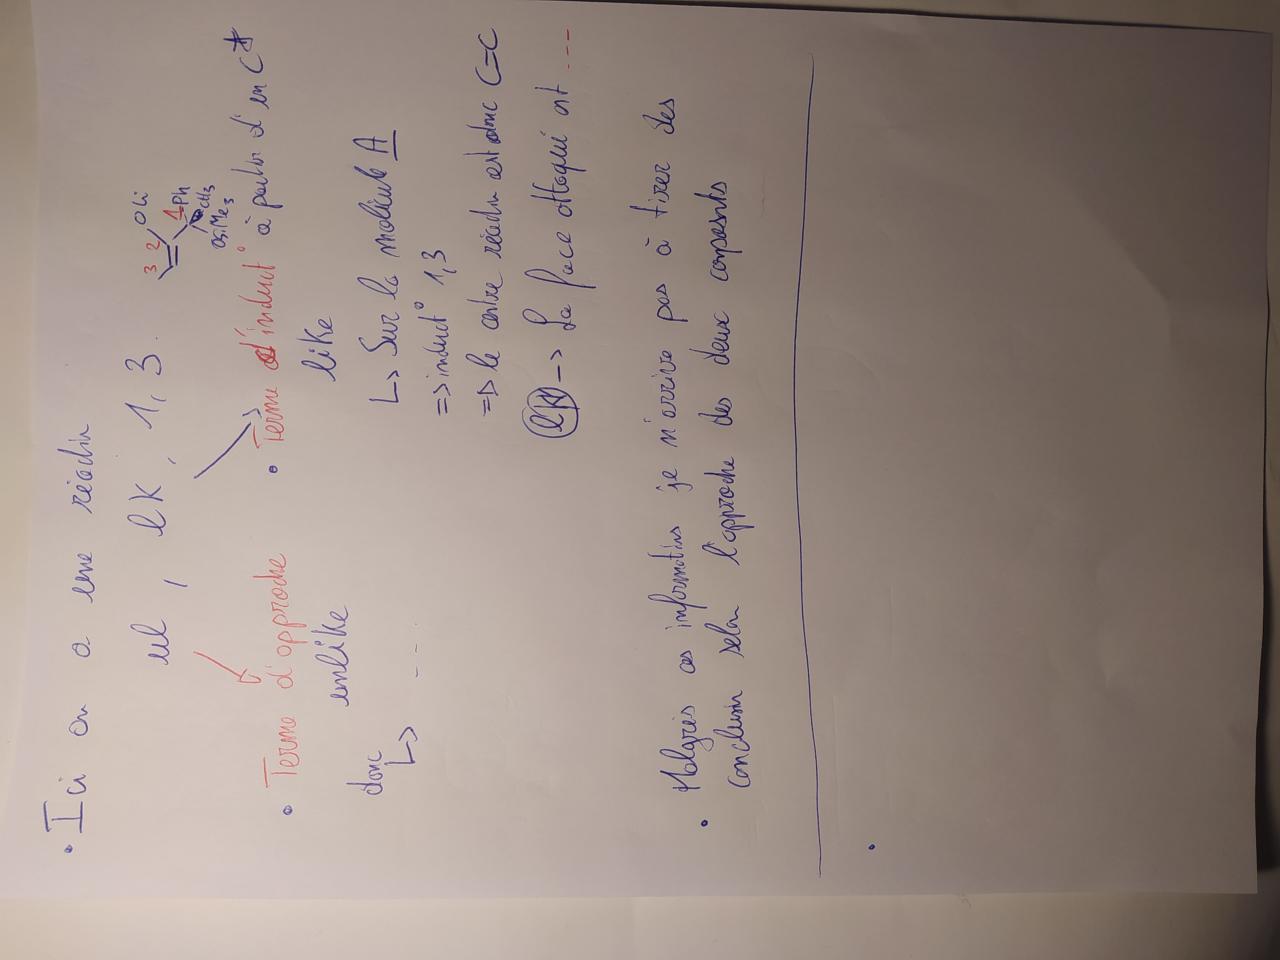 • Ici on a une réaction
ul, lk, 1,3.
3 2 OLi
1 Ph
CH3
OSiMe3
• Terme d'approche
unlike
donc
↳ ...
• Terme d'induct° à partir d'un C*
like
↳ Sur la molécule A
=> induct° 1,3
=> le centre réactin est donc C=C
lk -> La face attaqué est ...
• Malgrés ces informatins je n'arrive pas à tirer des
conclusin selon l'approche des deux composants
•